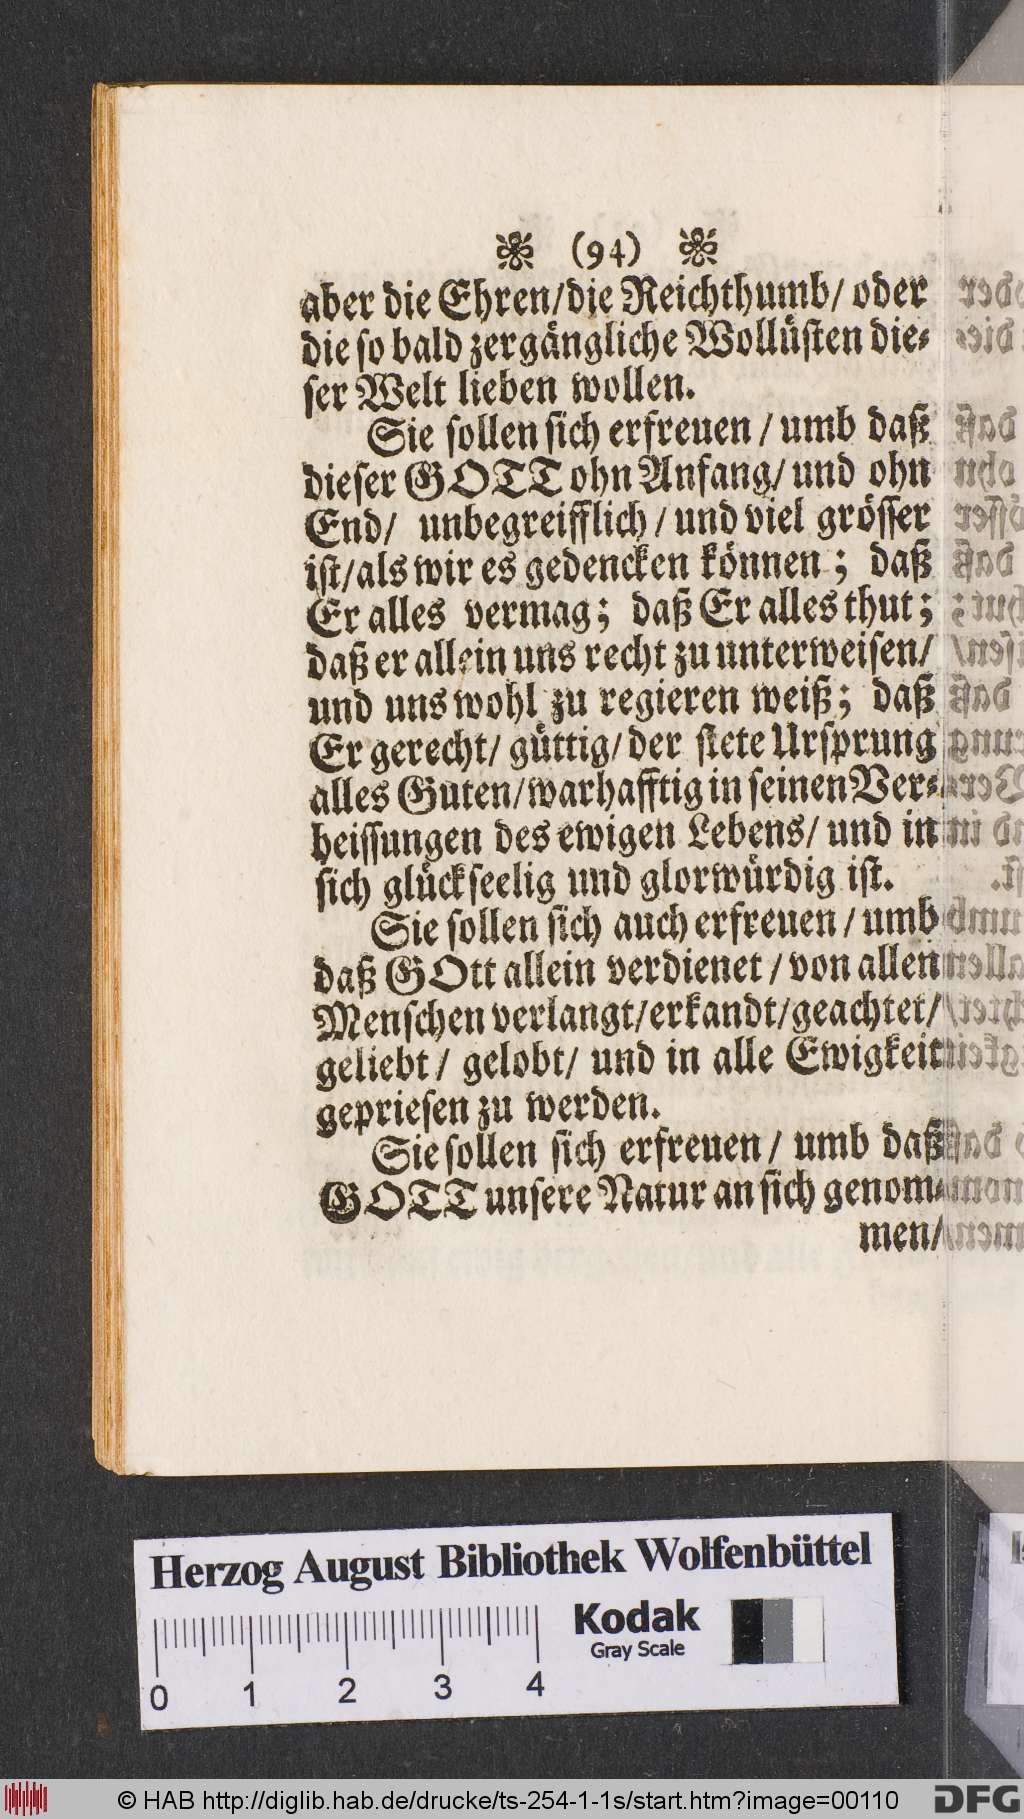 ❧ (94) ❧
aber die Ehren/die Reichthumb/ oder
die so bald zergängliche Wollüsten die-
ser Welt lieben wollen.
Sie sollen sich erfreuen / umb daß
dieser GOTT ohn Anfang/ und ohn
End/ unbegreifflich / und viel grösser
ist/als wir es gedencken können ; daß
Er alles vermag; daß Er alles thut;
daß er allein uns recht zu unterweisen/
und uns wohl zu regieren weiß; daß
Er gerecht/ güttig/ der stete Ursprung
alles Guten/warhafftig in seinen Ver-
heissungen des ewigen Lebens/ und in
sich glückseelig und glorwürdig ist.
Sie sollen sich auch erfreuen / umb
daß GOtt allein verdienet / von allen
Menschen verlangt/erkandt/geachtet/
geliebt / gelobt/ und in alle Ewigkeit
gepriesen zu werden.
Sie sollen sich erfreuen / umb daß
GOTT unsere Natur an sich genom-
men/
Herzog August Bibliothek Wolfenbüttel
Kodak
Gray Scale
0 1 2 3 4
© HAB http://diglib.hab.de/drucke/ts-254-1-1s/start.htm?image=00110
DFG